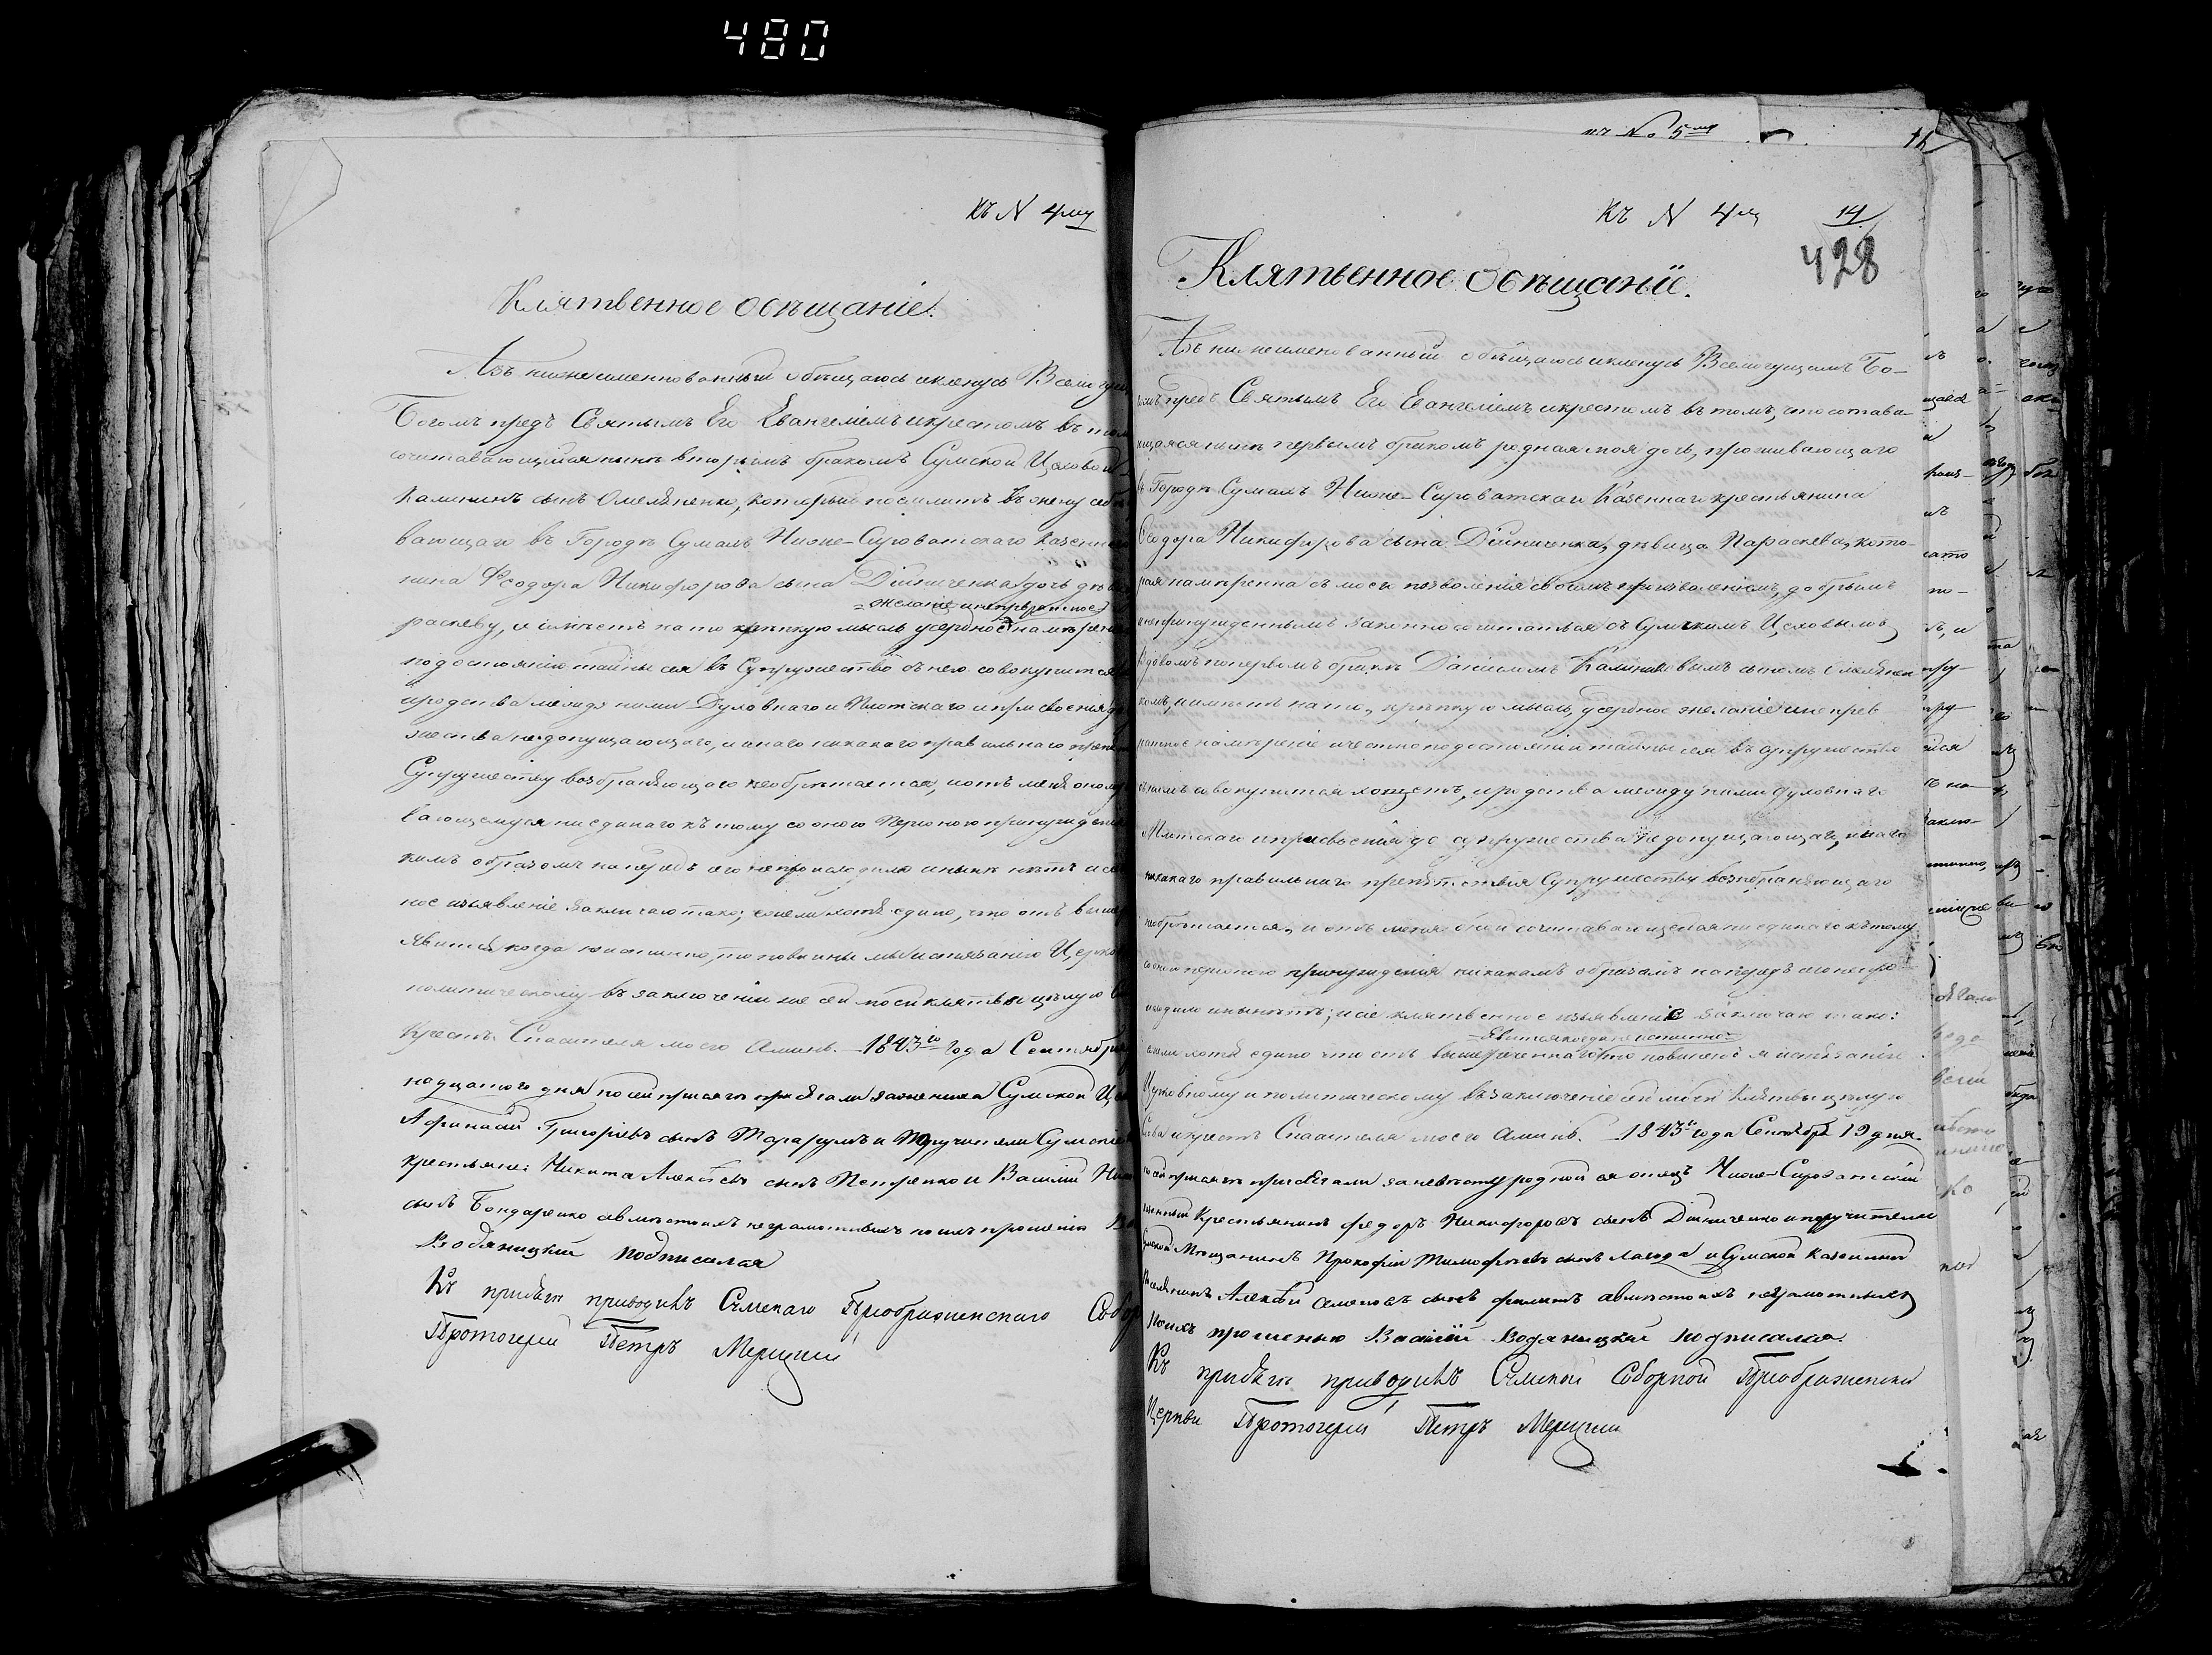 480
Къ N 4му
Клятвенное обѣщаніе.
Азъ нижеименнованный обѣщаюсь и кленусь Всемогущ
Богомъ предъ Святымъ Его Евангеліемъ и крестомъ въ том
сочитавающійся нынѣ вторымъ бракомъ Сумской Цеховой
Калининъ сынъ Омеляненко, который посилитъ въ жену себѣ
вающаго въ Городѣ Сумахъ Нижне-Сыроватскаго казенна
нина Феодора Никифорова сына Дѣйниченка дочь дѣв
= желаніе и непревратное
раскеву, и имѣетъ на то крѣпкую мысль усердное намѣрен
по достоянію тайны сея въ Супружество съ нею совокупится
сродства между ними Духовнаго и Плотскаго и присвоенія
жества недопущающаго, и инаго никакаго правильнаго препят
Супружеству возбраняющаго необрѣтается, и отъ мене оному
вающемуся ни единаго къ тому со оною Персоною принужден
кимъ образомъ напредъ сего непроисходило и нынѣ нѣтъ и се
ное изъявленіе заключаю тако; ежели хотя едино, что отъ выше
явится когда неистинно, то повинны мы истязанію Церко
политическому въ заключеніи же сей моей клятвы цѣлую
Крестъ Спасителя моего Аминь. 1843го Года Сентября
надцатого дня по сей присягѣ присягали за жениха Сумской Це
Афанасій Григорьевъ сынъ и Поручители Сумскіе
крестьяне: Никита Алексѣевъ сынъ Петренко и Василій
сынъ Бондаренко а вмѣсто ихъ неграмотныхъ по ихъ прошенію
Водяницкій подписался
Къ присягѣ приводилъ Сумскаго Преображенскаго Собор
Протоіерей Петръ
къ No 5му
Къ N 4му 14
428
Клятвенное обѣщаніе.
Азъ нижеименованный обѣщаюсь и кленусь Всемогущимъ Бо-
гомъ предъ Святымъ Его Евангеліемъ и крестомъ въ томъ, что сочтава-
ющаяся нынѣ первымъ бракомъ родная моя дочь, проживающаго
въ Городѣ Сумахъ Нижне-Сыроватскаго Казеннаго крестьянина
Феодора Никифорова сына Дѣйниченка, дѣвица Параскева, кото-
рая намѣренна съ моего позволенія своимъ произволеніемъ, добрымъ
и непринужденнымъ законно сочитаться съ Сумскимъ Цеховымъ
вдовомъ по первомъ бракѣ Калининовымъ сыномъ Омелянен
комъ, и имѣетъ на то, крѣпкую мысль, усердное желаніе и непрев
ратное намѣреніе и честно по достоянію тайны сея въ супружество
съ нимъ совокупится хощетъ, и родства между ними духовнаго
и Плотскаго и присвоенія до супружества недопущающаго, инаго
никакаго правильнаго препятствія Супружеству возбраняющаго
необрѣтается, и отъ мене оной сочитавающейся ни единаго къ тому
со оною персоною принужденія никакимъ образомъ напредъ сего непро
исходило и нынѣ нѣтъ; и сіе клятвенное изъявленіе заключаю тако:
явится когда неистинно
ежели хотя едино что отъ вышереченнаго то повиненъ я истязанію
Церковному и политическому въ заключеніе сей моей Клятвы цѣлую
Слова и крестъ Спасителя моего Аминь. 1843го года Сентября 19 дня
по сей присягѣ присягали за невѣсту родной ея отецъ Нижне-Сыроватскій
казенный Крестьянинъ Федоръ Никифоровъ сынъ Дѣйниченко и поручители
Сумской Мѣщанинъ Прокофій Тимофѣевъ сынъ Лагода и Сумской Казенный
Поселянинъ Алексѣй Семеновъ сынъ а вмѣсто ихъ неграмотныхъ
по ихъ прошенію Василій Водяницкій подписался.
Къ присягѣ приводилъ Сумской Соборной Преображенской
Церкви Протоіерей Петръ